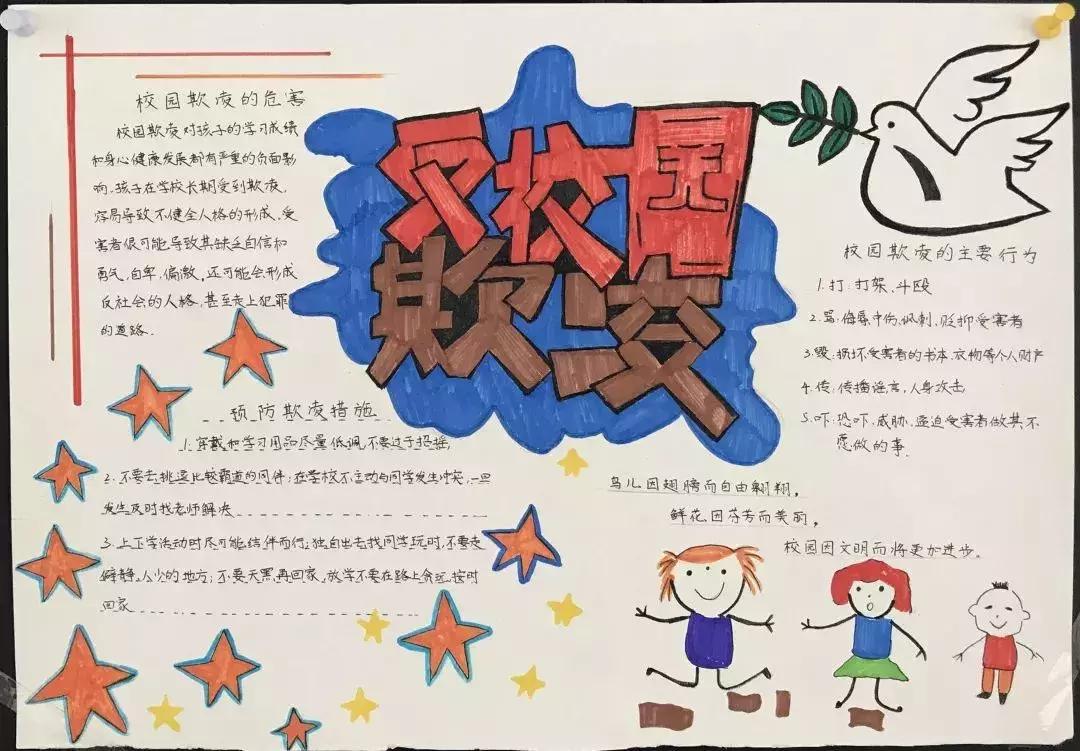 校园欺凌的危害
校园欺凌对孩子的学习成绩
和身心健康发展都有严重的负面影
响,孩子在学校长期受到欺凌,
容易导致不健全人格的形成,受
害者很可能导致其缺乏自信和
勇气,自卑,偏激,还可能会形成
反社会的人格,甚至走上犯罪
的道路.
校园
欺凌
校园欺凌的主要行为
1.打:打架、斗殴
2.骂:侮辱中伤,讽刺,贬抑受害者
3.毁:损坏受害者的书本,衣物等个人财产
4.传:传播谣言,人身攻击
5.吓:恐吓、威胁、逼迫受害者做其不
愿做的事.
预防欺凌措施
1.穿戴和学习用品尽量低调,不要过于招摇,
2.不要去挑逗比较霸道的同伴;在学校不主动与同学发生冲突,一旦
发生及时找老师解决
3.上下学活动时尽可能结伴而行;独自出去找同学玩时,不要走
僻静、人少的地方;不要天黑再回家,放学不要在路上贪玩,按时
回家
鸟儿因翅膀而自由翱翔,
鲜花因芬芳而美丽,
校园因文明而将更加进步。